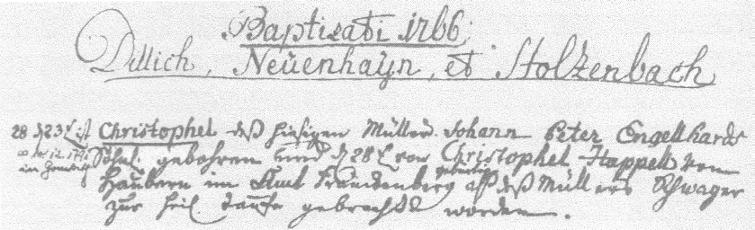 Baptisati 1766
Dillich, Neüenhaÿn, et Stolzenbach
28 d 23 ist Christophel deß hiesigen Müllers Johann Peter Engelhards
Sohn gebohren und d 28 von Christophel Happell von
Haubern im Amt Franckenberg alß deß Müllers Schwager
zur heil. Taufe gebracht worden.